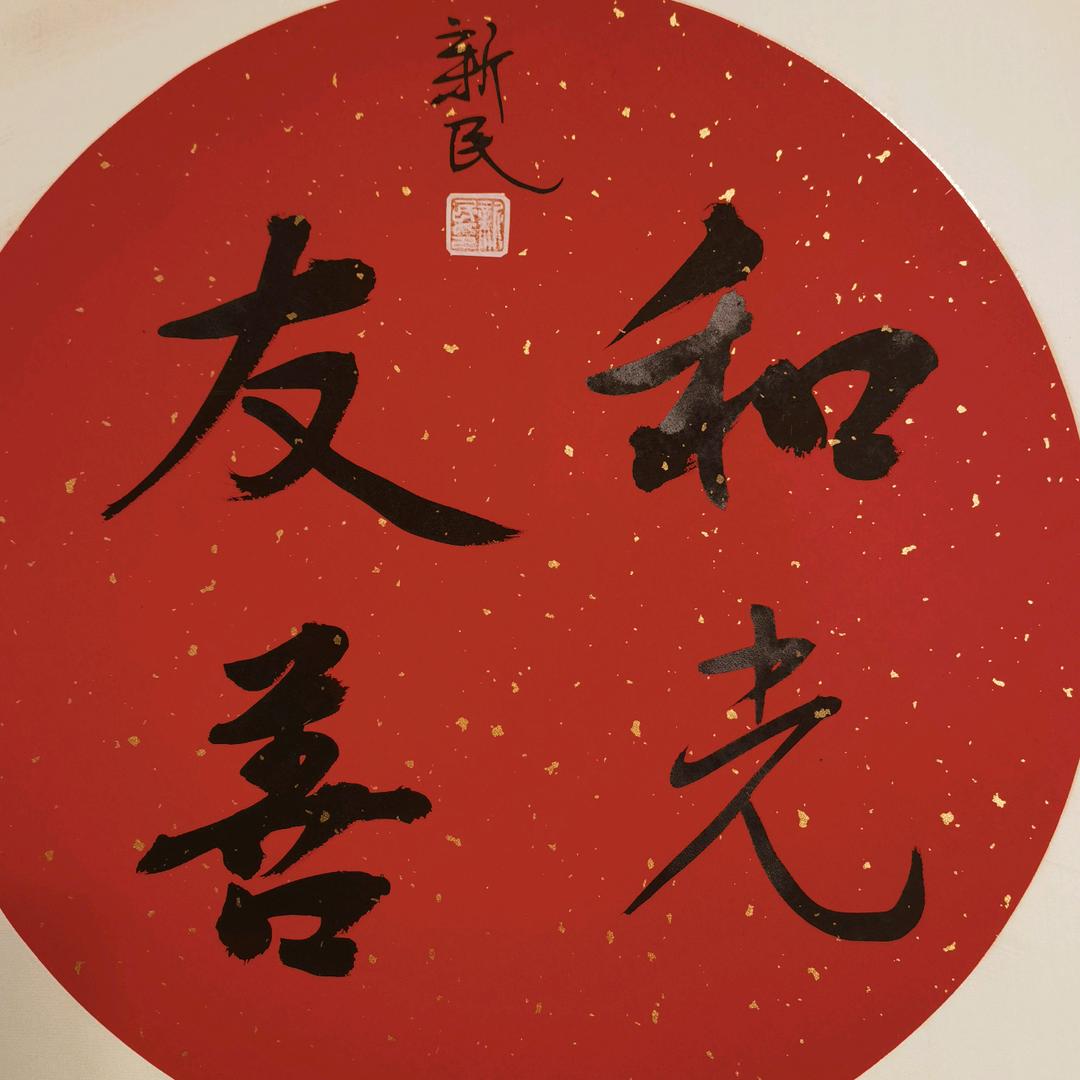 和光
友善
新民